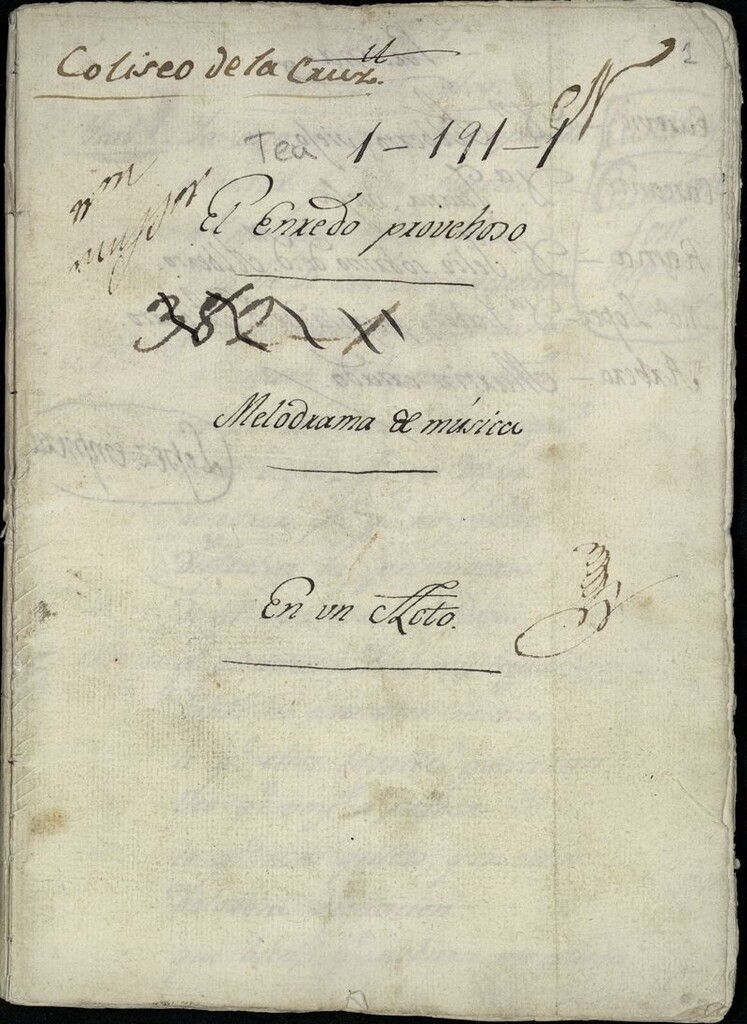 Coliseo de la Cruz.
1
Tea 1-191-9
El Enredo provehoso
382
Melodrama de música
En un Acto.